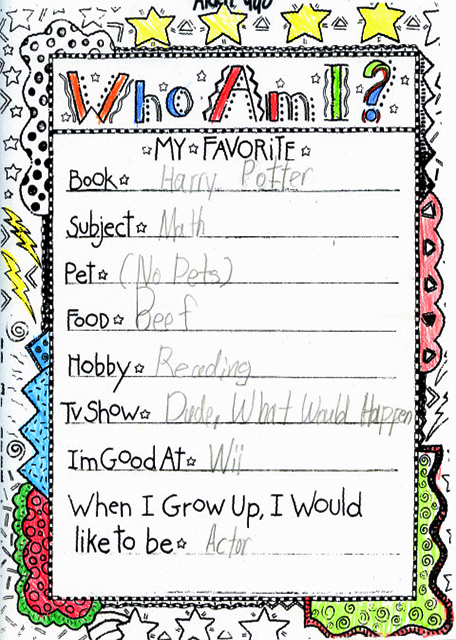 Who Am I?
☆MY☆FAVORITE☆
Book☆ Harry Potter
Subject☆ Math
Pet☆ (No Pets)
FOOD☆ Beef
Hobby☆ Reading
Tv Show☆ Dude, What Would Happen
I'm Good At☆ Wii
When I Grow Up, I Would
like to be☆ Actor